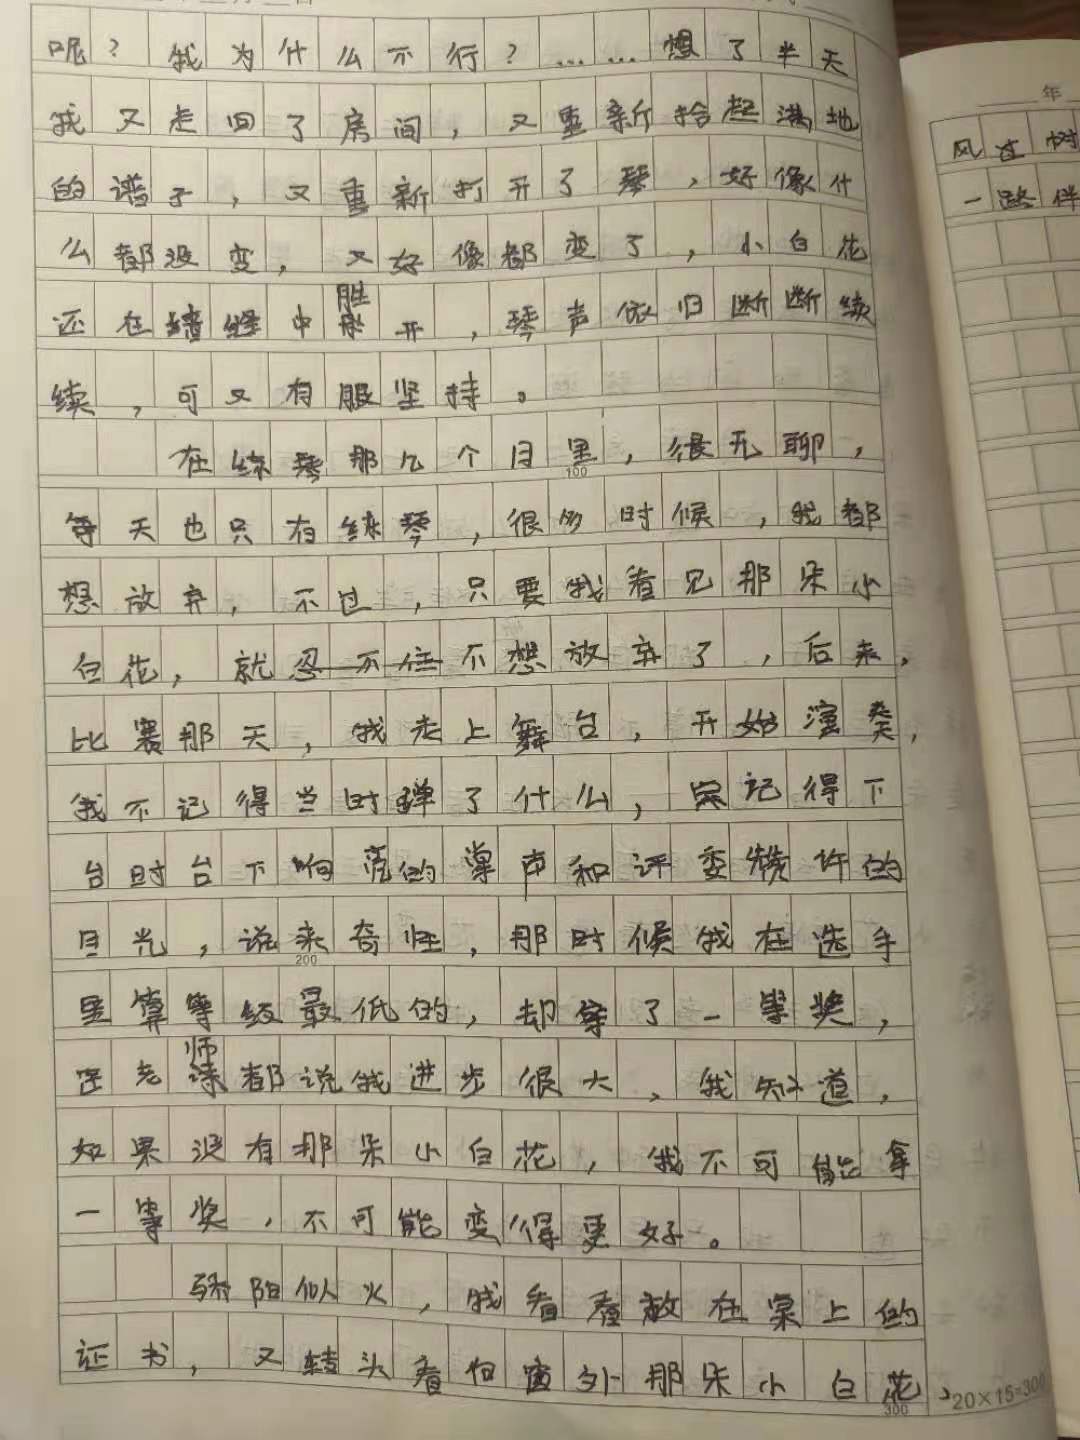 呢？我为什么不行？……想了半天
我又走回了房间，又重新拾起满地
的谱子，又重新打开了琴，好像什
么都没变，又好像都变了，小白花
还在墙缝中胜开，琴声依旧断断续
续，可又有股坚持。
在练琴那几个月里，很无聊，
每天也只有练琴，很多时候，我都
想放弃，不过，只要我看见那朵小
白花，就忍不住不想放弃了，后来，
比赛那天，我走上舞台，开始演奏，
我不记得当时弹了什么，只记得下
台时台下响亮的掌声和评委赞许的
目光，说来奇怪，那时候我在选手
里算等级最低的，却拿了一等奖，
老师都说我进步很大，我知道，
如果没有那朵小白花，我不可能拿
一等奖，不可能变得更好。
骄阳似火，我看看放在桌上的
证书，又转头看向窗外那朵小白花，
100
200
300
20×15=300
年
风过树
一路伴